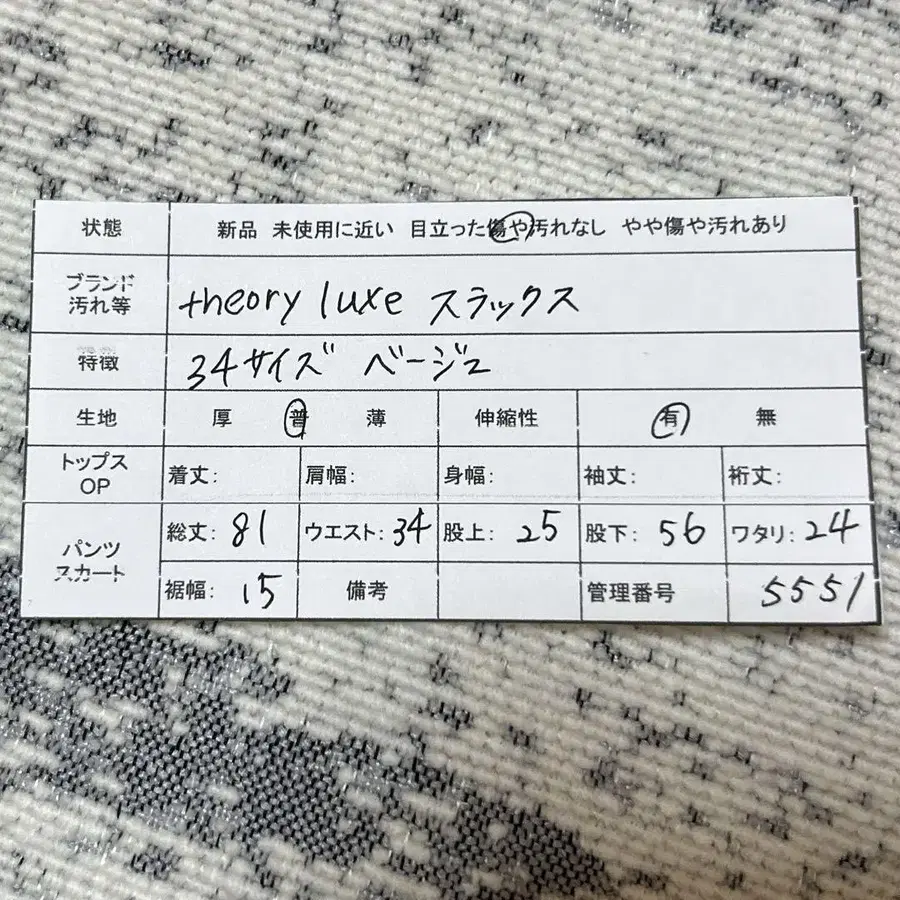 状態 新品 未使用に近い 目立った傷や汚れなし やや傷や汚れあり
ブランド
汚れ等 theory luxe スラックス
特徴 34サイズ ベージュ
生地 厚 普 薄 伸縮性 有 無
トップス
OP 着丈: 肩幅: 身幅: 袖丈: 裄丈:
パンツ
スカート 総丈: 81 ウエスト: 34 股上: 25 股下: 56 ワタリ: 24
裾幅: 15 備考 管理番号 5551